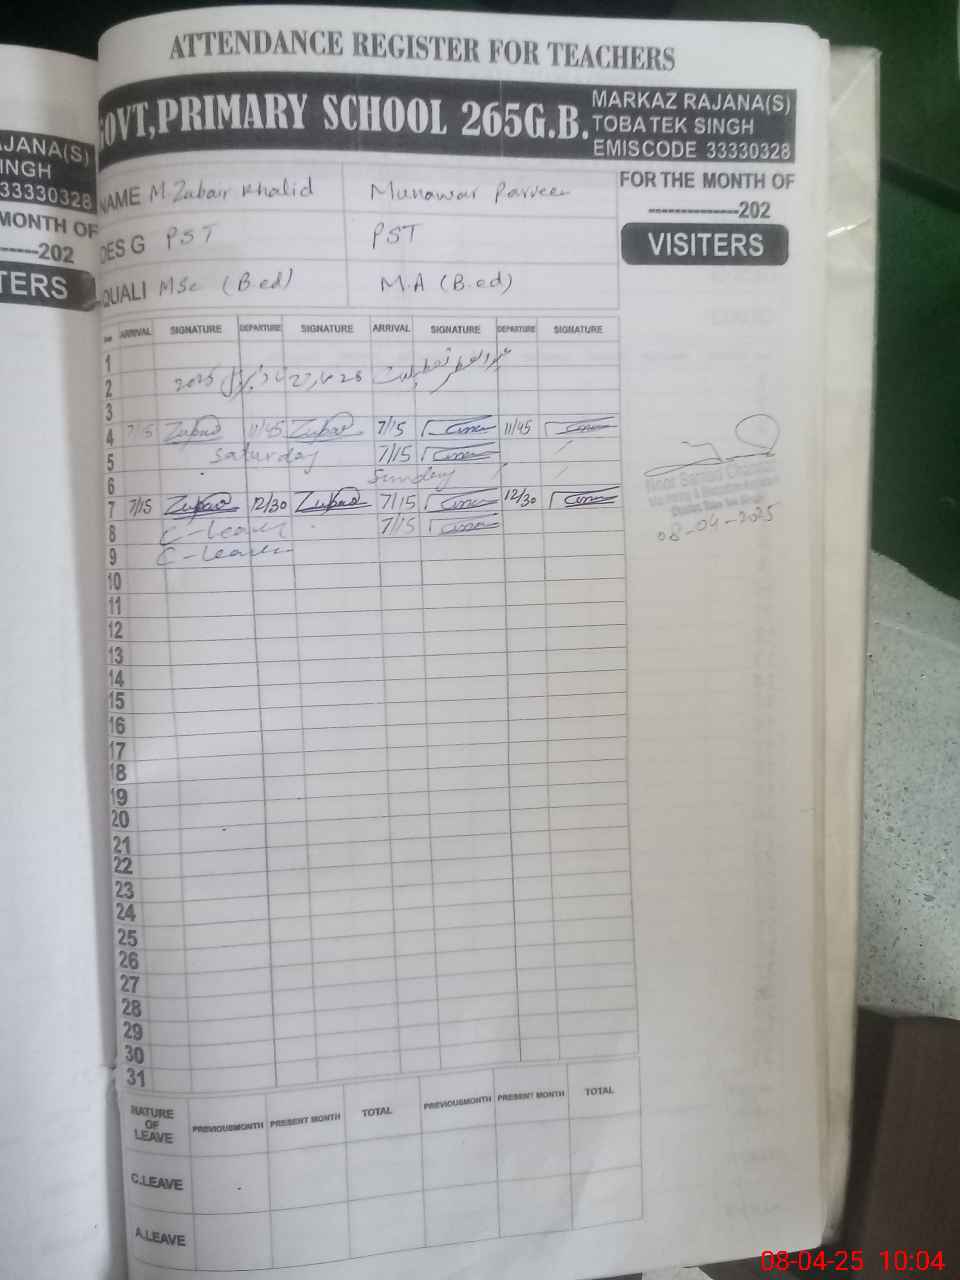 ATTENDANCE REGISTER FOR TEACHERS
GOVT,PRIMARY SCHOOL 265G.B.
MARKAZ RAJANA(S)
TOBA TEK SINGH
EMISCODE 33330328
JANA(S)
INGH
33330328
MONTH OF
-----202
TERS
NAME M. Zubair Khalid Munawar Parveen
FOR THE MONTH OF
--------------202
DES G PST PST
VISITERS
QUALI MSc (B.ed) M.A (B.ed)
ARRIVAL SIGNATURE DEPARTURE SIGNATURE ARRIVAL SIGNATURE DEPARTURE SIGNATURE
1
2 2025
3
4 7/15 Zubair 11/45 Zubair 7/15 11/45
5 Saturday 7/15
6 Sunday
7 7/15 Zubair 12/30 Zubair 7/15 12/30
8 C-leave 7/15
9 C-leave
08-04-2025
10
11
12
13
14
15
16
17
18
19
20
21
22
23
24
25
26
27
28
29
30
31
NATURE OF LEAVE PREVIOUSMONTH PRESENT MONTH TOTAL PREVIOUSMONTH PRESENT MONTH TOTAL
C.LEAVE
A.LEAVE
08-04-25 10:04